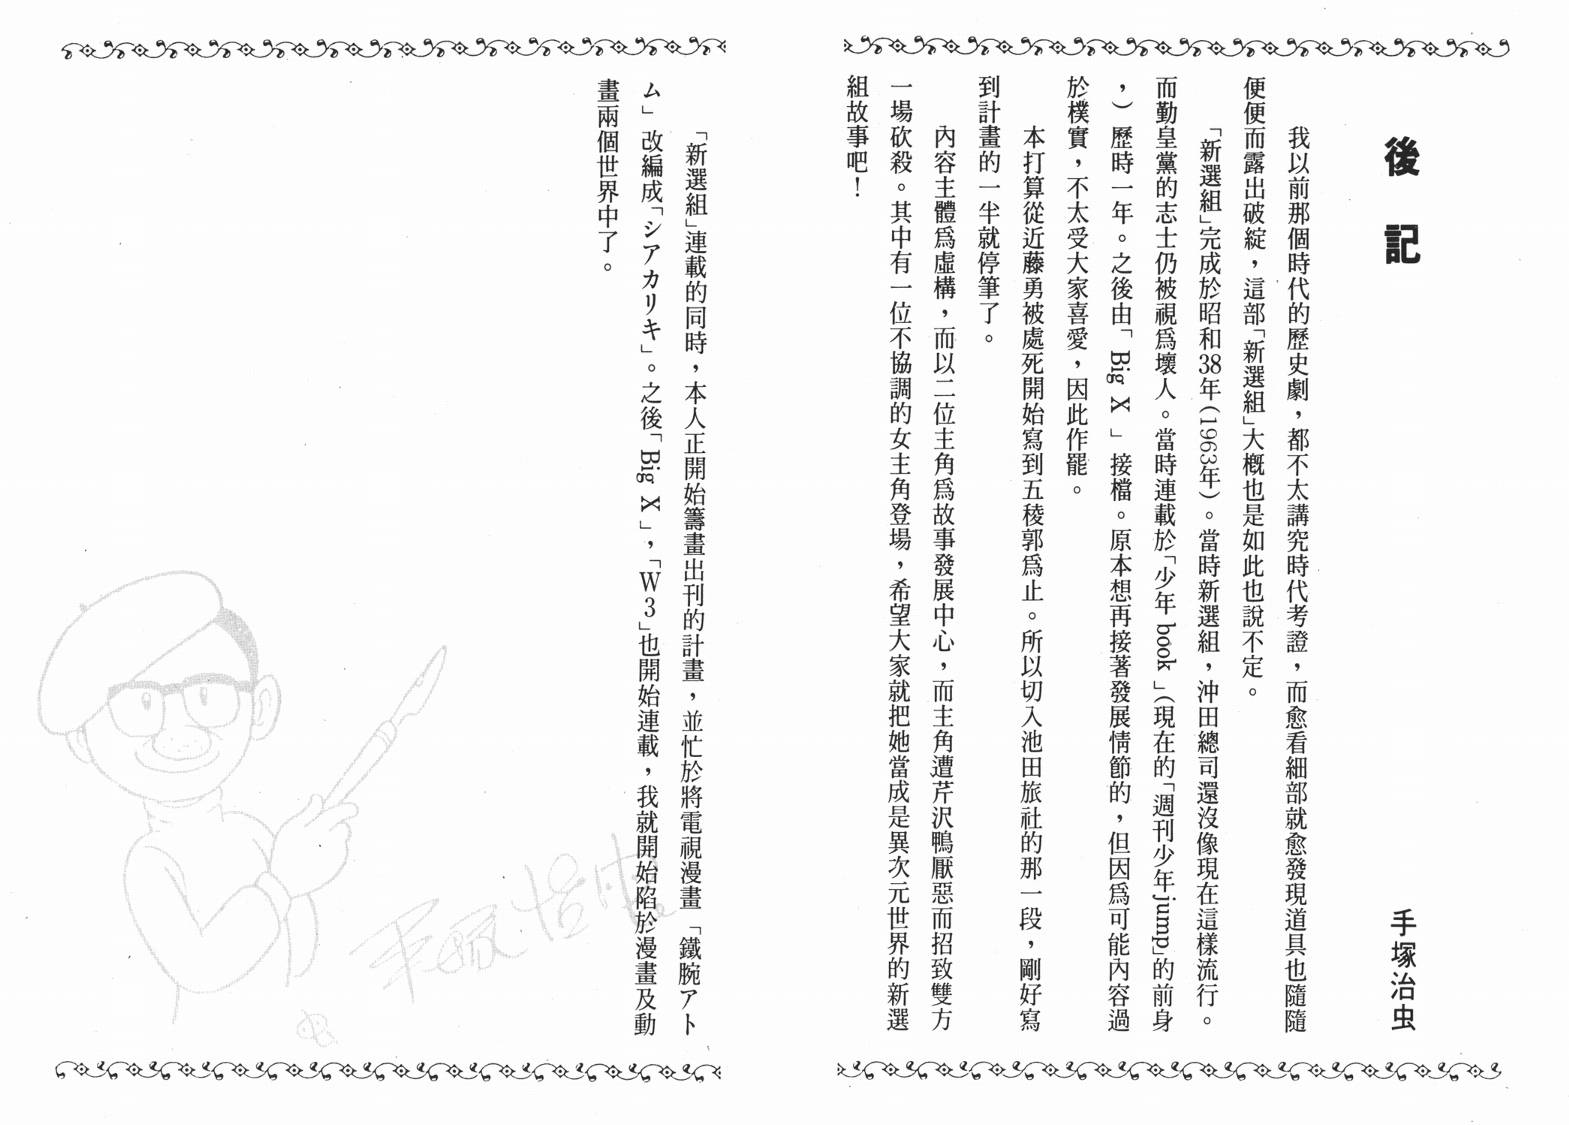 後記
手塚治虫
我以前那個時代的歷史劇，都不太講究時代考證，而愈看細部就愈發現道具也隨隨
便便而露出破綻，這部「新選組」大概也是如此也說不定。
「新選組」完成於昭和38年(1963年)。當時新選組，沖田總司還沒像現在這樣流行。
而勤皇黨的志士仍被視爲壞人。當時連載於「少年book」(現在的「週刊少年jump」的前身
，)歷時一年。之後由「Big X」接檔。原本想再接著發展情節的，但因爲可能內容過
於樸實，不太受大家喜愛，因此作罷。
本打算從近藤勇被處死開始寫到五稜郭爲止。所以切入池田旅社的那一段，剛好寫
到計畫的一半就停筆了。
內容主體爲虛構，而以二位主角爲故事發展中心，而主角遭芹沢鴨厭惡而招致雙方
一場砍殺。其中有一位不協調的女主角登場，希望大家就把她當成是異次元世界的新選
組故事吧！
「新選組」連載的同時，本人正開始籌畫出刊的計畫，並忙於將電視漫畫「鐵腕アト
ム」改編成「シアカリキ」。之後「Big X」，「W3」也開始連載，我就開始陷於漫畫及動
畫兩個世界中了。
手塚治虫